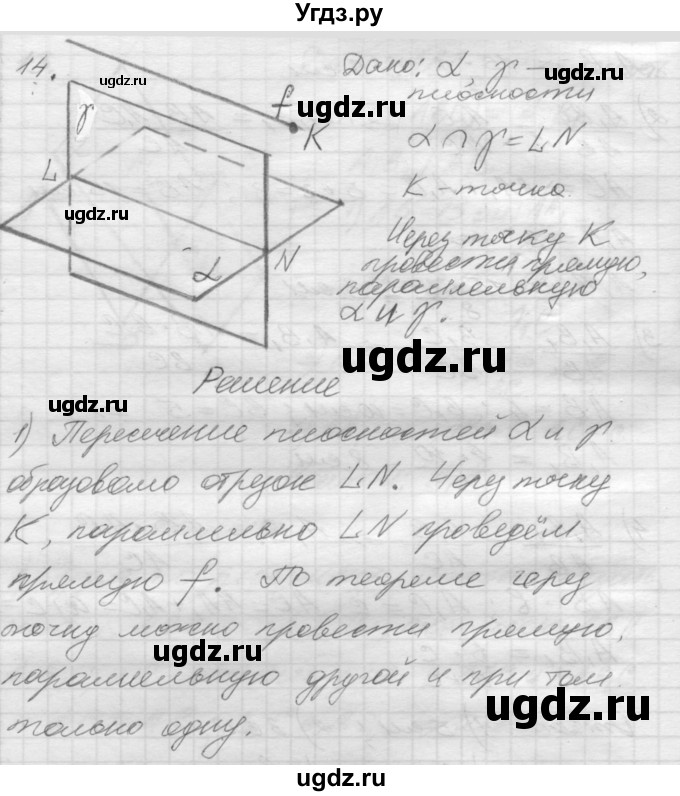 Угдз.ру
14.
Дано: α, γ –
плоскости
α ∩ γ = LN
K – точка.
Через точку K
провести прямую,
параллельную
α и γ.
f
K
γ
L
N
α
Решение
1) Пересечение плоскостей α и γ
образовало отрезок LN. Через точку
K, параллельно LN проведём
прямую f. По теореме через
точку можно провести прямую,
параллельную другой и при том
только одну.
ugdz.ru
ugdz.ru
ugdz.ru
ugdz.ru
ugdz.ru
ugdz.ru
ugdz.ru
ugdz.ru
ugdz.ru